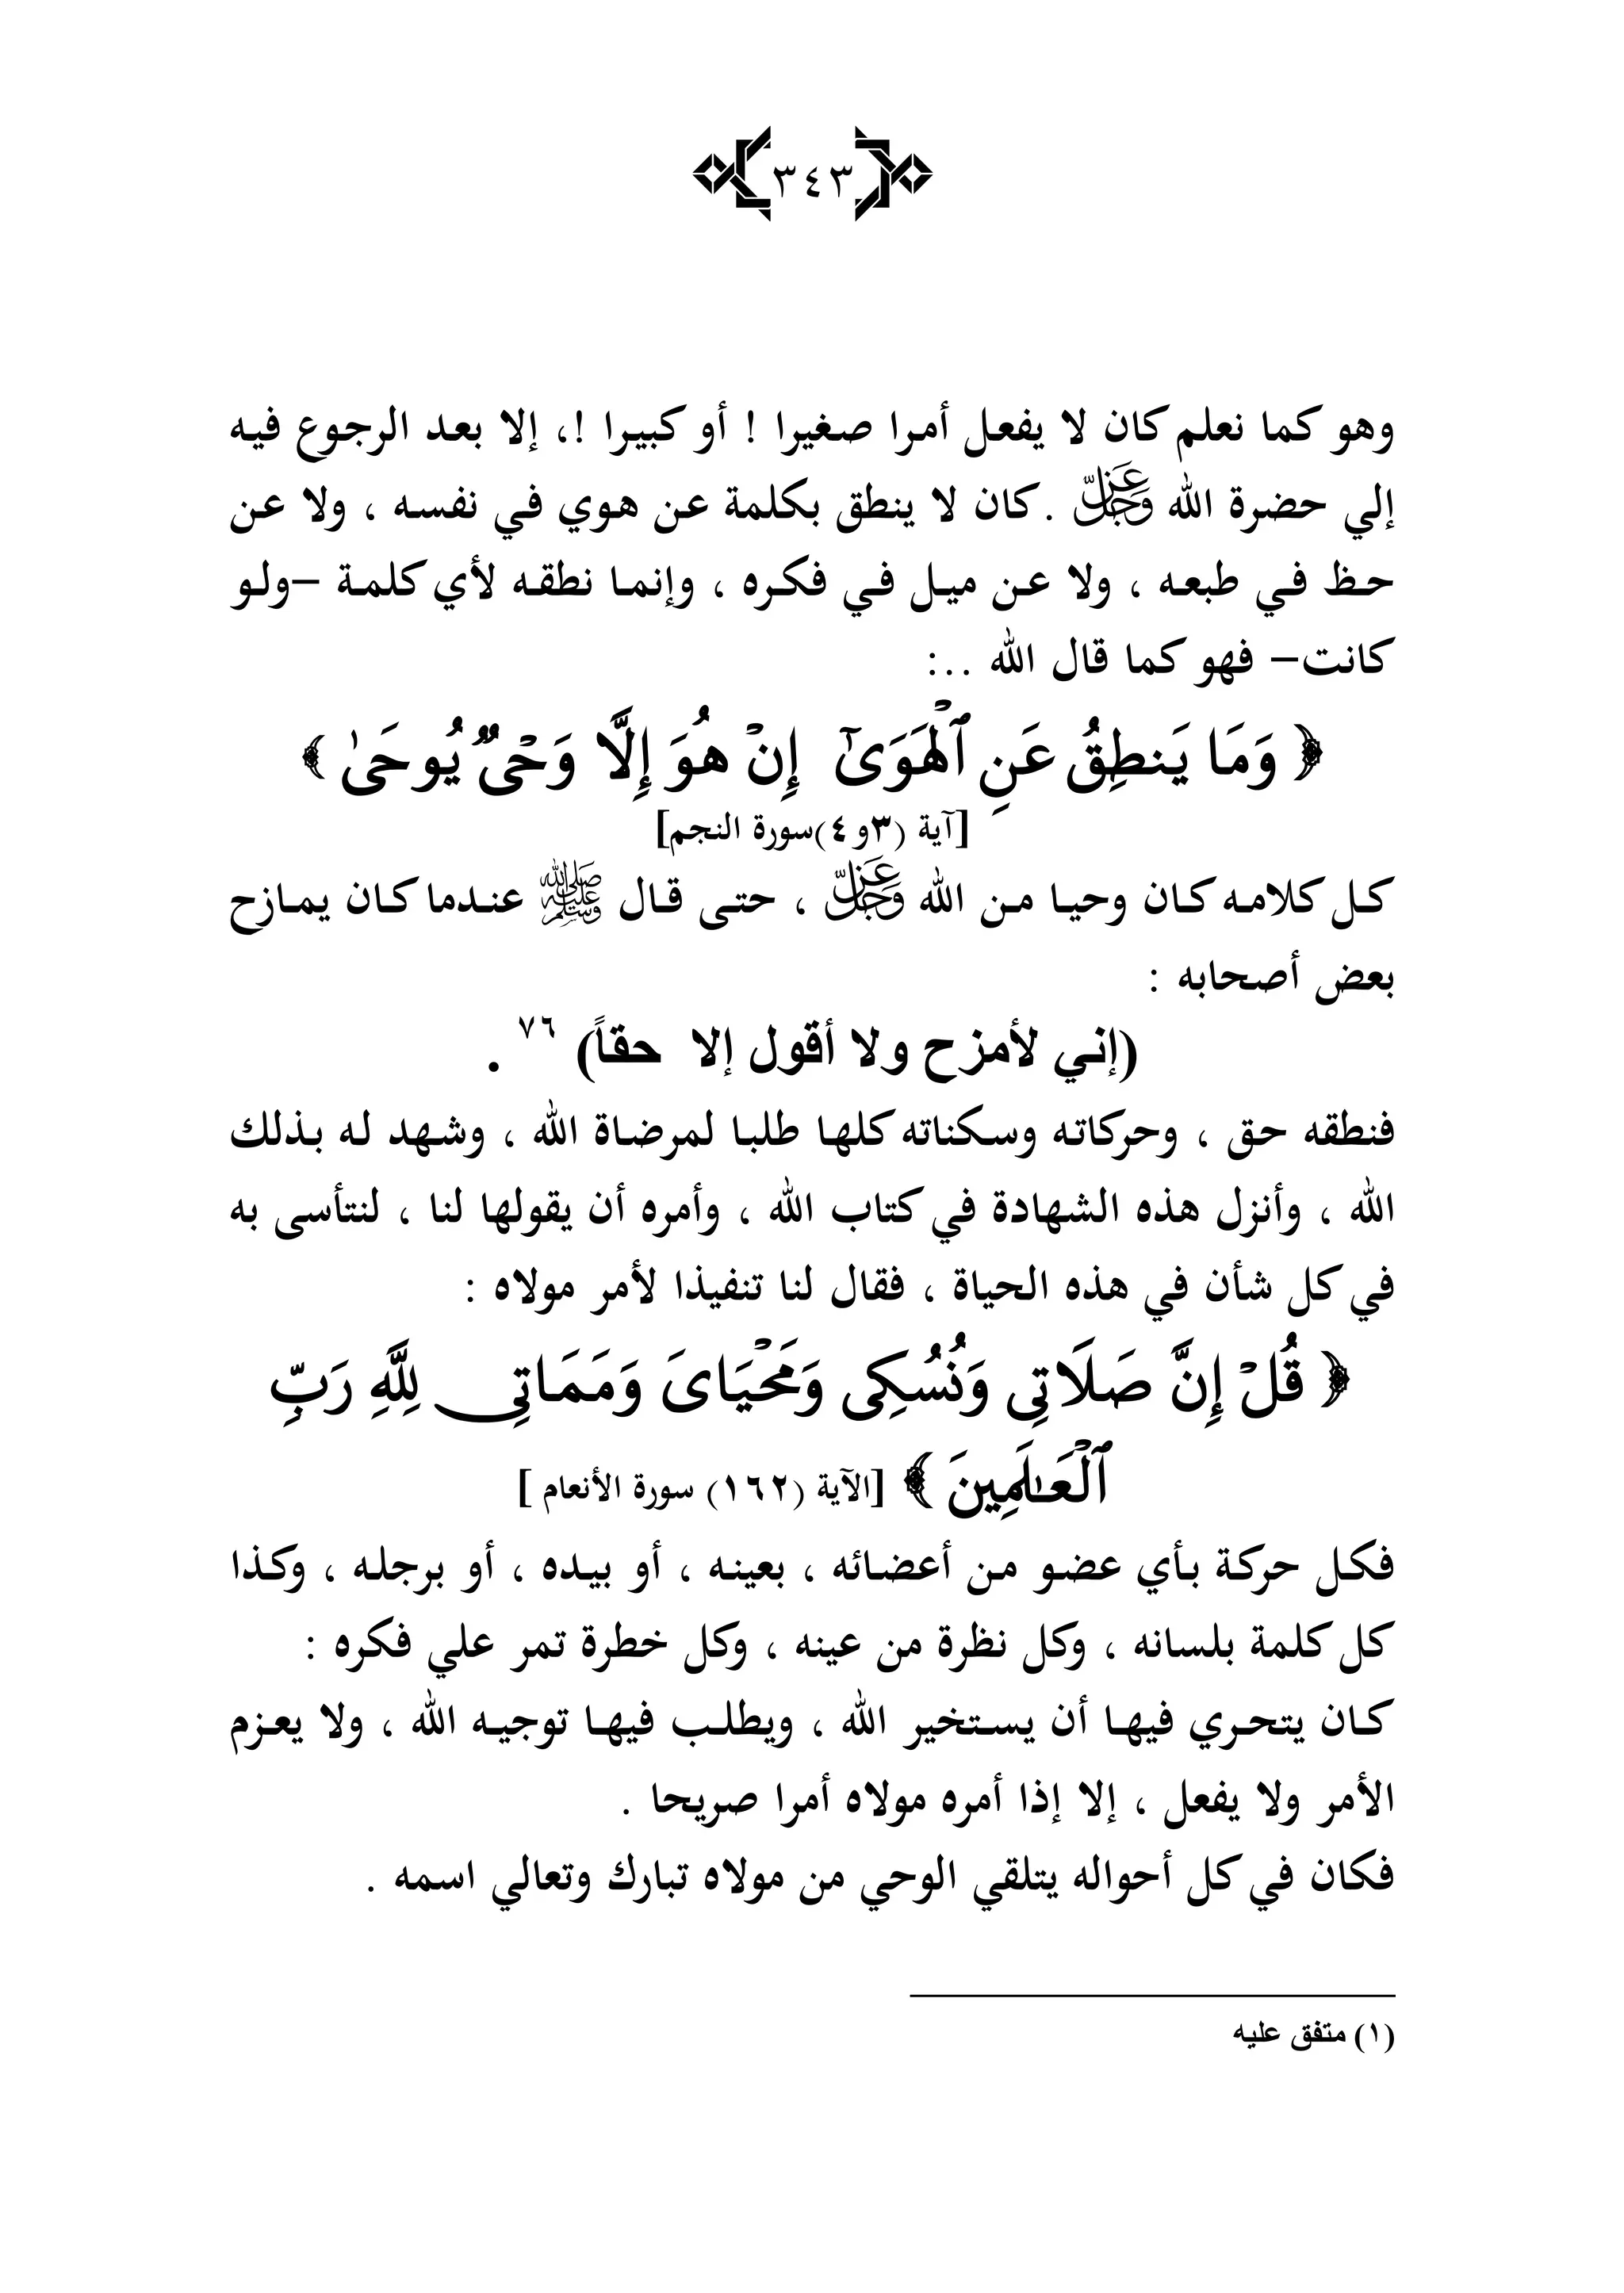 ٣٤٣
وهو كما نعلم كان لا يفعل أمرا صغيرا ! أو كبيرا !، إلا بعد الرجوع فيه
إلي حضرة الله ﷻ . كان لا ينطق بكلمة عن هوي في نفسه ، ولا عن
حظ في طبعه ، ولا عن ميل في فكره ، وإنما نطقه لأي كلمة –ولو
كانت– فهو كما قال الله ..:
﴿ وَمَا يَنطِقُ عَنِ ٱلْهَوَىٰٓ إِنْ هُوَ إِلَّا وَحْىٌ يُوحَىٰ ﴾
[آية (٣و٤)سورة النجم]
كل كلامه كان وحيا من الله ﷻ ، حتى قال ﷺ عندما كان يمازح
بعض أصحابه :
(إني لأمزح ولا أقول إلا حقاً) ٧٦ .
فنطقه حق ، وحركاته وسكناته كلها طلبا لمرضاة الله ، وشهد له بذلك
الله ، وأنزل هذه الشهادة في كتاب الله ، وأمره أن يقولها لنا ، لنتأسى به
في كل شأن في هذه الحياة ، فقال لنا تنفيذا لأمر مولاه :
﴿ قُلْ إِنَّ صَلَاتِى وَنُسُكِى وَمَحْيَاىَ وَمَمَاتِى لِلَّهِ رَبِّ
ٱلْعَـٰلَمِينَ ﴾ [الآية (١٦٢) سورة الأنعام ]
فكل حركة بأي عضو من أعضائه ، بعينه ، أو بيده ، أو برجله ، وكذا
كل كلمة بلسانه ، وكل نظرة من عينه ، وكل خطرة تمر علي فكره :
كان يتحري فيها أن يستخير الله ، ويطلب فيها توجيه الله ، ولا يعزم
الأمر ولا يفعل ، إلا إذا أمره مولاه أمرا صريحا .
فكان في كل أحواله يتلقي الوحي من مولاه تبارك وتعالي اسمه .
(١) متفق عليه